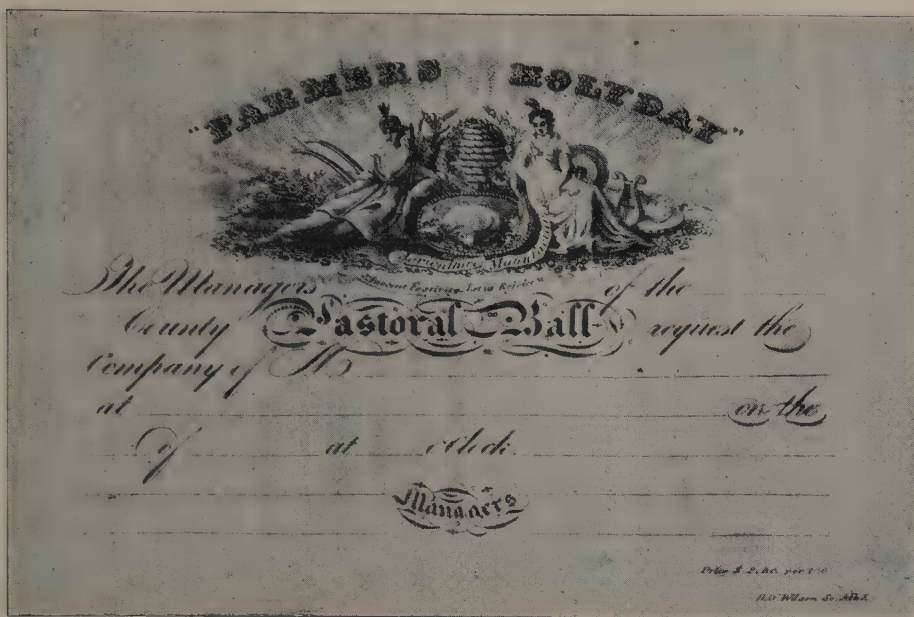 "FARMERS HOLYDAY"
Agriculture, Manufactures
The Managers of the
County Pastoral Ball request the
Company of M
at on the
of at o'clock
Managers
Price $ per
Wilson Sc.